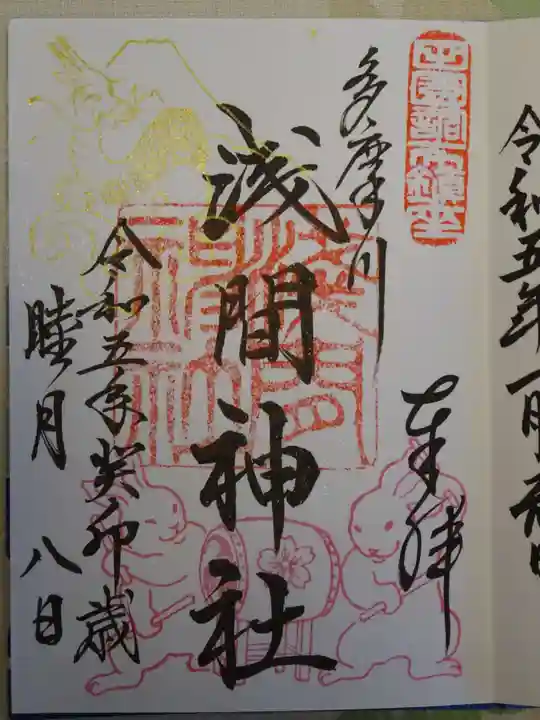 令和五年一月
奉拝
多摩川
浅間神社
令和五年癸卯歳
睦月 八日
浅間神社